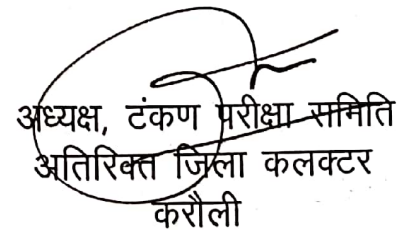 अध्यक्ष, टंकण परीक्षा समिति
अतिरिक्त जिला कलक्टर
करौली